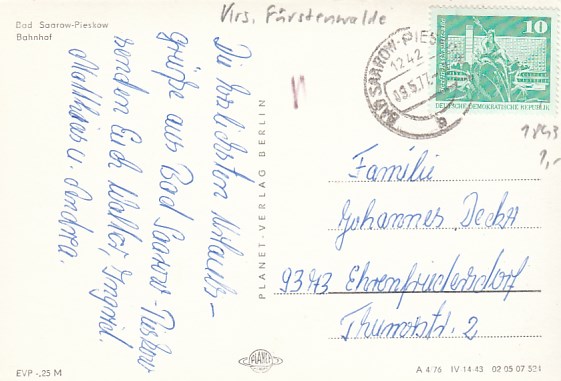 Krs. Fürstenwalde
Bad Saarow-Pieskow
Bahnhof
Die herzlichsten Urlaubs-
grüße aus Bad Saarow-Pieskow
senden Euch Walter, Ingrid
Matthias u. Andrea.
PLANET-VERLAG BERLIN
BAD SAAROW-PIES
1242
09.5.77
a
10
Berlin-Rathausstraße
DEUTSCHE DEMOKRATISCHE REPUBLIK
1843
1,-
Familie
Johannes
9373 Ehrenfriedersdorf
Thumerstr. 2
PLANET
EVP -,25 M
A 4/76 IV 14-43 02 05 07 524